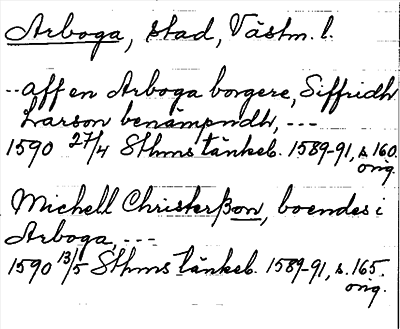 Arboga, stad, Västm. l.
-- aff en Arboga borgere, Siffridh
Larson benämpndh, ---
1590 27/4 Sthms tänkeb. 1589-91, s. 160.
orig.
Michell Christerßon, boendes i
Arboga, ---
1590 13/5 Sthms tänkeb. 1589-91, s. 165.
orig.